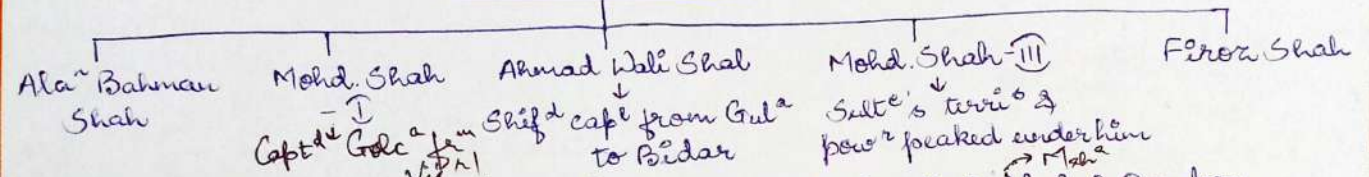 Ala~ Bahman Shah
Mohd. Shah - I
Captᵈ Golcᵃ frᵐ
Ahmad Wali Shal
Shifᵈ capˡ from Gulᵃ
to Bidar
Mohd. Shah - III
Sultᵉ's terriˢ &
powʳ peaked under him
Firoz Shah